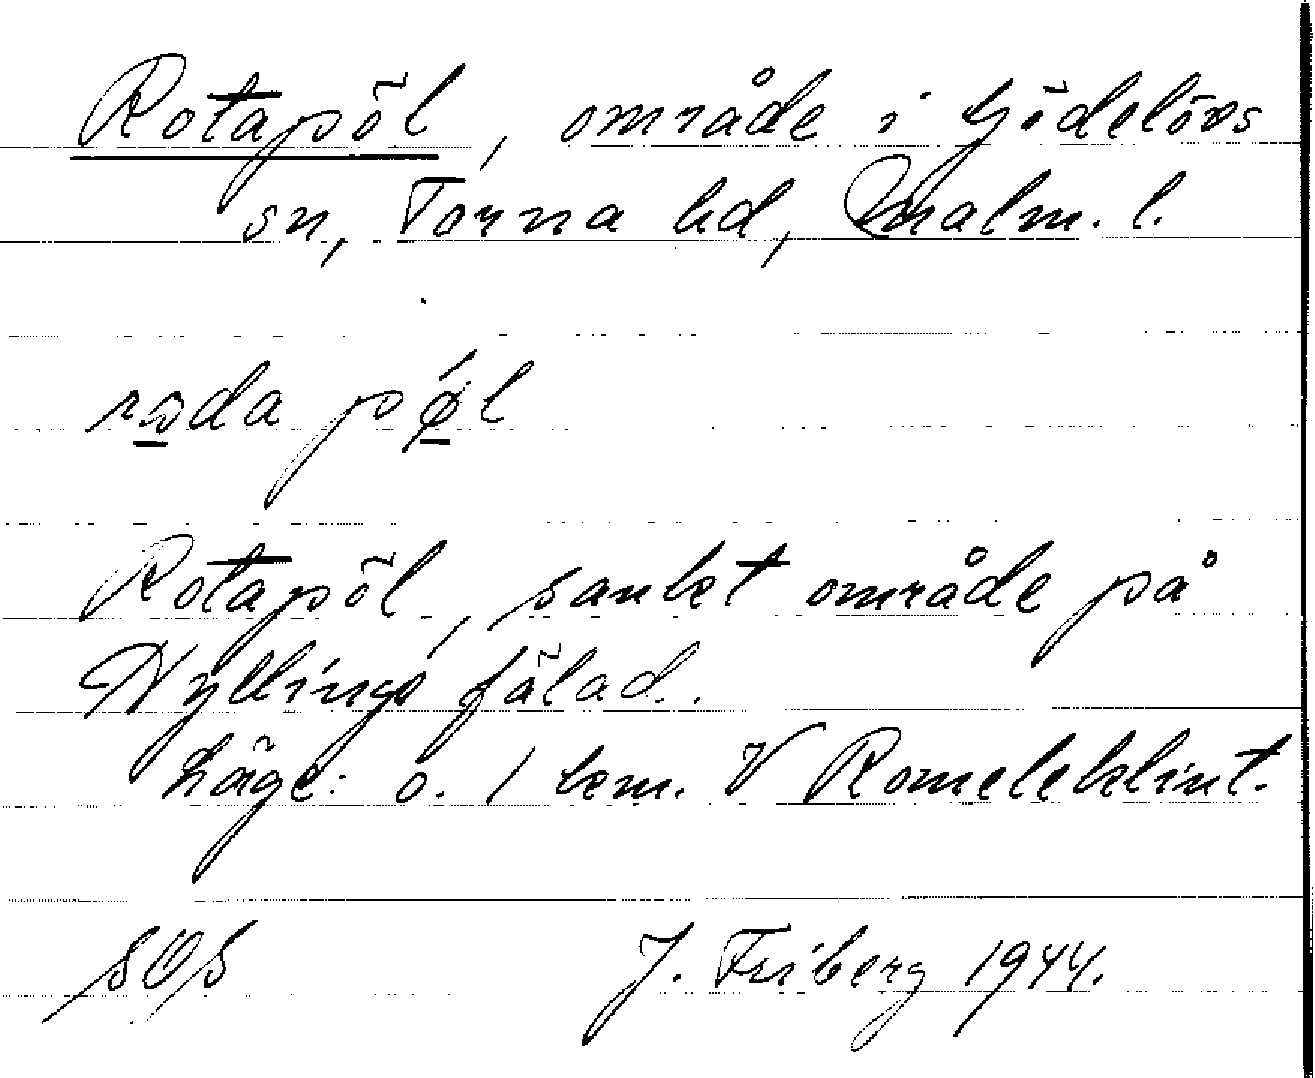 Rotapöl, område i Gödelövs
sn, Torna hd, Malm. l.
roda pøl
Rotapöl, sankt område på
Nyllings fälad.
Läge: o. 1 km. V Romeleklint.
J. Friberg 1944.